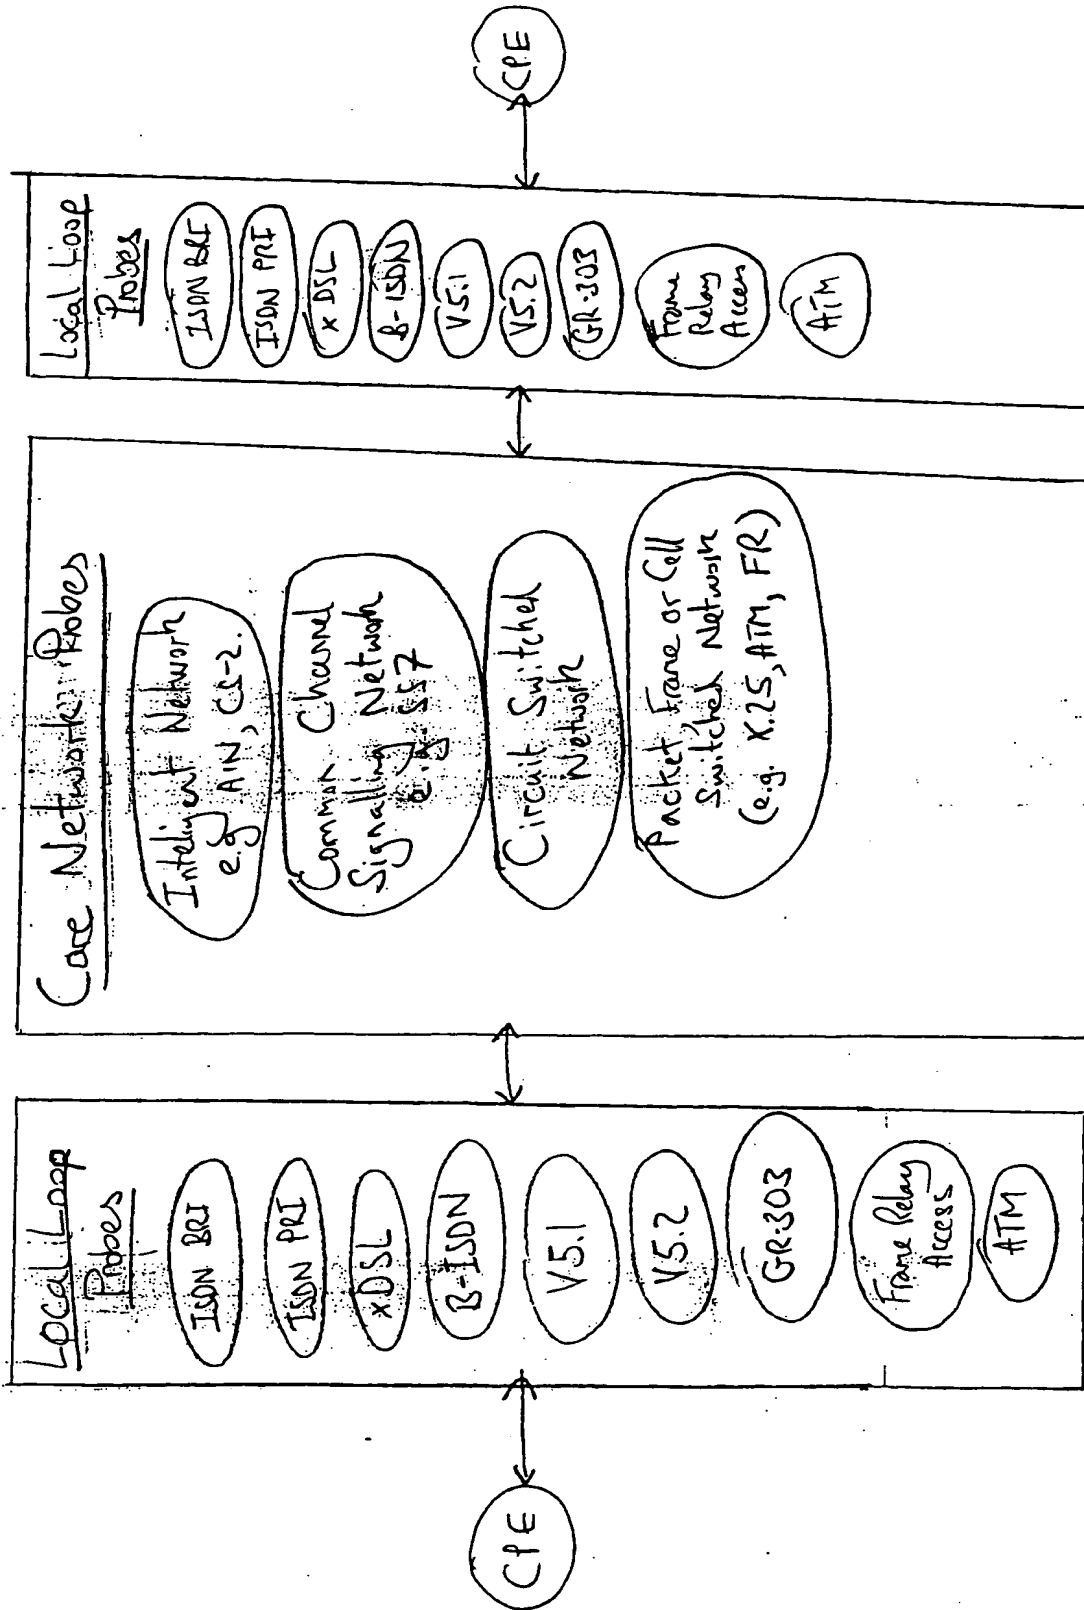 CPE
Local Loop
Probes
ISDN BRI
ISDN PRI
xDSL
B-ISDN
V5.1
V5.2
GR:303
Frame Relay
Access
ATM
Core Network Probes
Inteligent Network
e.g AIN, CS-2.
Common Channel
Signalling Network
e.g. SS7
Circuit Switched
Network
Packet, Frame or Cell
Switched Network
(e.g. X.25, ATM, FR)
Local Loop
Probes
ISDN BRI
ISDN PRI
xDSL
B-ISDN
V5.1
V5.2
GR:303
Frame
Relay
Access
ATM
CPE